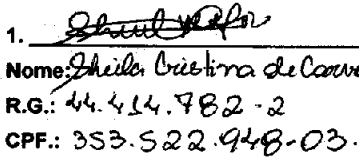 1.
Nome: Sheila Cristina de Carv
R.G.: 44.414.782-2
CPF.: 353.522.948-03.